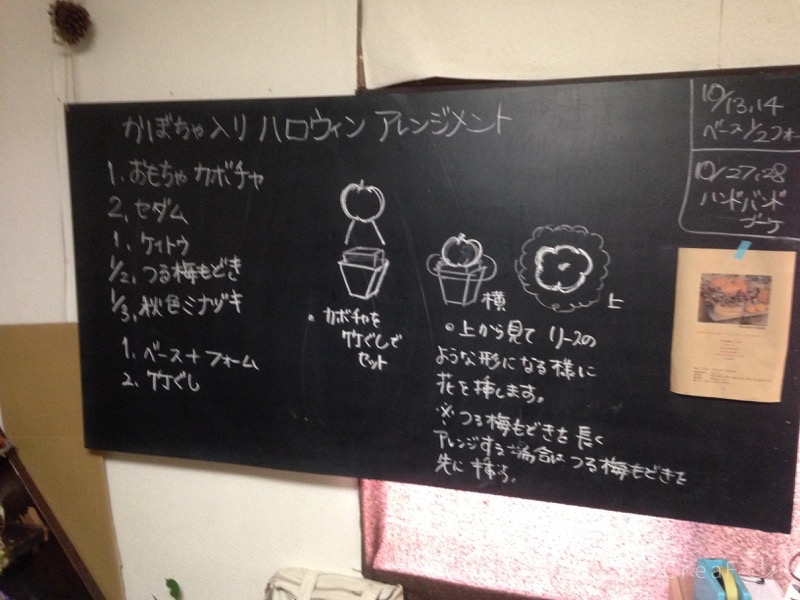 かぼちゃ入り ハロウィン アレンジメント
1. おもちゃ カボチャ
2. セダム
1. ケイトウ
1/2. つる梅もどき
1/3. 秋色ミナヅキ
1. ベース+フォーム
2. 竹ぐし
。カボチャを
竹ぐしで
セット
横
上
。上から見て リースの
ような形になる様に
花を挿します。
※つる梅もどきを長く
アレンジする場合は つる梅もどきを
先に挿す。
10/13,14
ベース1/2フォー
10/27,28
ハンドバンド
ブーケ